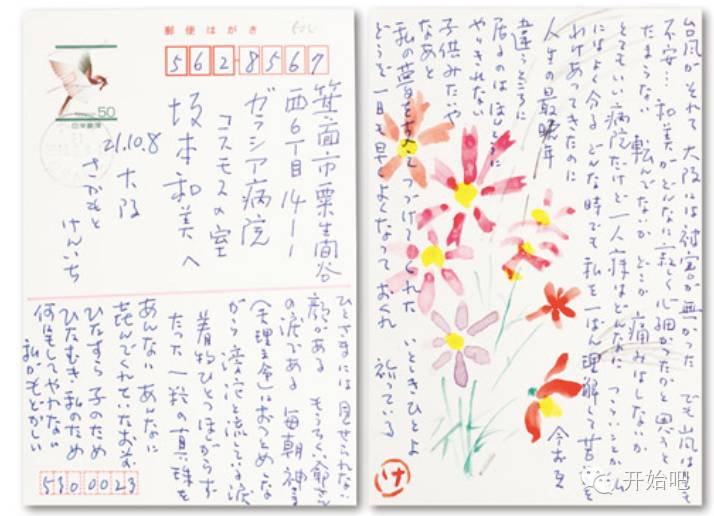 郵便はがき
50
日本郵便
562-8567
箕面市粟生間谷
西6丁目14-1
ガラシア病院
コスモスの室
坂本和美へ
21.10.8 大阪
さかもと
けんいち
ひとさまには見せられない
顔がある もう 爺さん
の涙である 毎朝神
におつとめしな
がら 滂沱と流している涙
着物ひとつほしがらず
たった一粒の真珠を
あんなに あんなに
喜んでくれていたおまえ
ひたすら子のため
ひたむき私のため
何もしてやれない
私がもどかしい
5300023
台風がそれて 大阪には被害が無かった でも台風は
不安… 和美がどんなに寂しく心細かったかと思うと
たまらない 転んでないか どこか痛みはしないか
とてもいい病院だけど一人寝はどんなに つらいことか 私
にはよく分る どんな時でも私を一ばん理解して苦 を
わけあってきたのに
人生の最晩年 今お互
違うところに
居るのは ほんとうに
やりきれない
子供みたいや
なあと
私の夢を つづけてくれた いとしきひとよ
どうぞ一日も早くよくなっておくれ 祈っている
け
开始吧